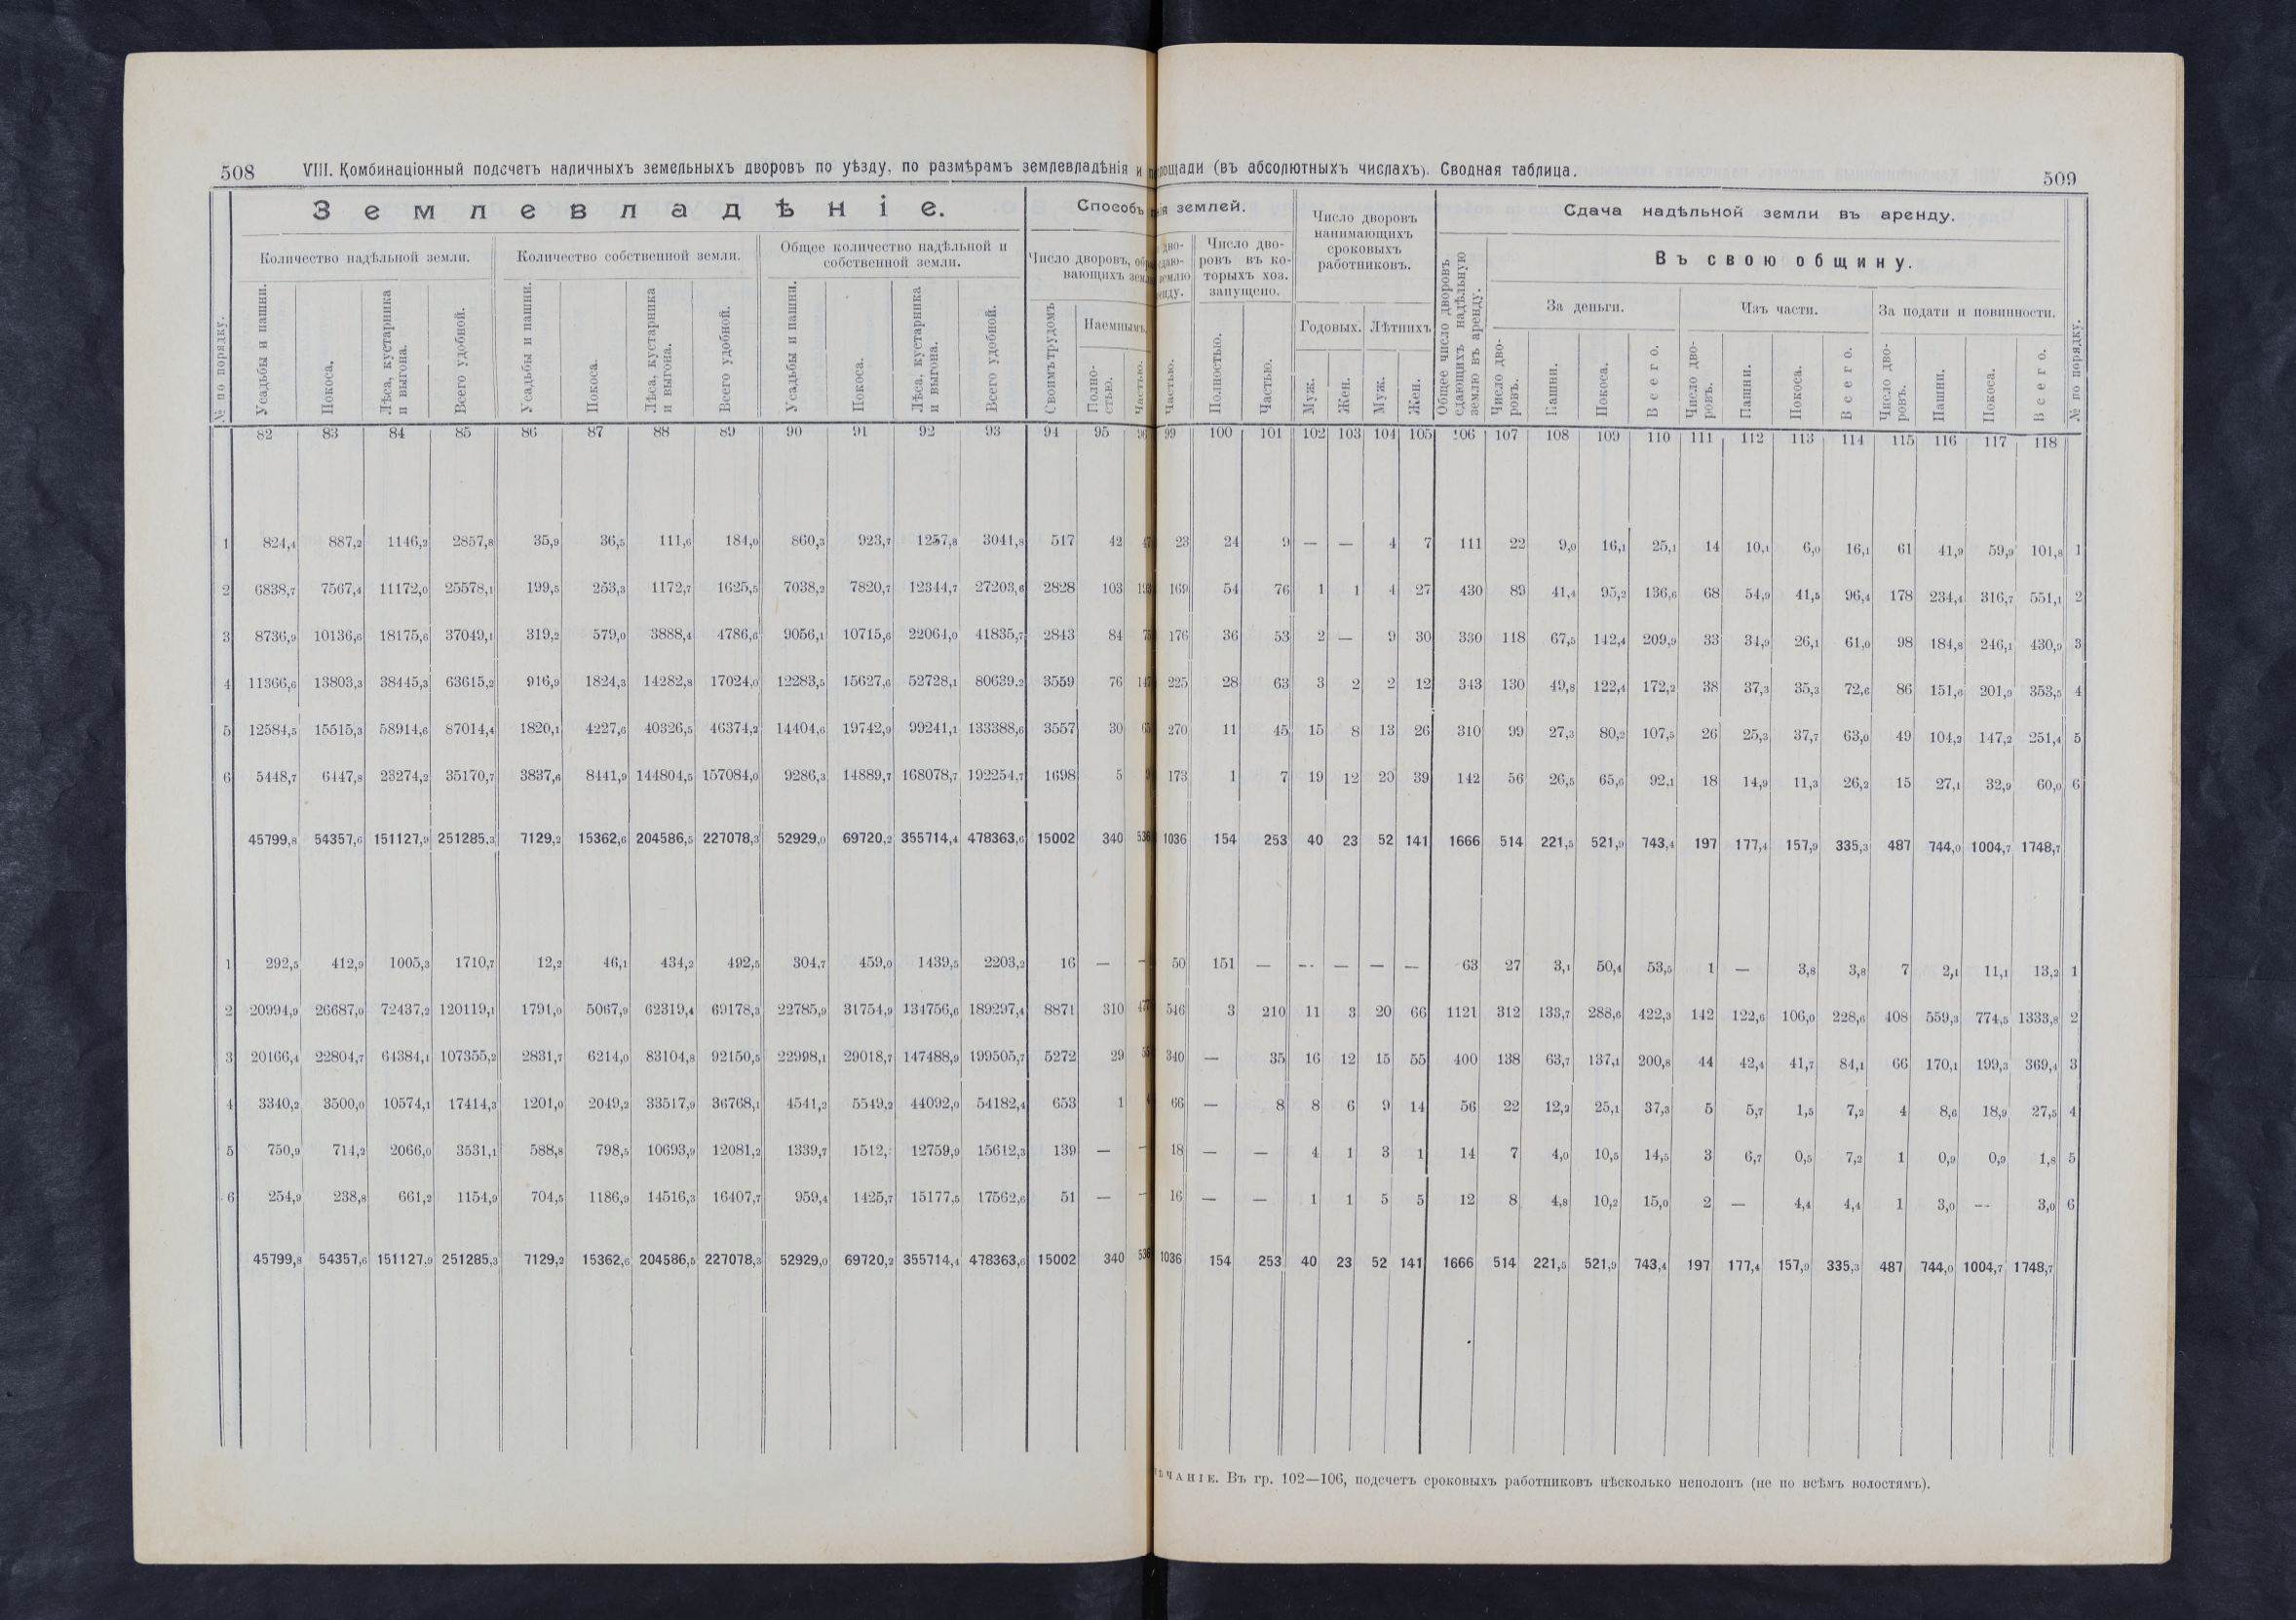 508 VIII. Комбинаціонный подсчетъ наличныхъ земельныхъ дворовъ по уѣзду, по размѣрамъ землевладѣнія и площади (въ абсолютныхъ числахъ). Сводная таблица. 509
Землевладѣніе.
Способъ нія землей.
Число дворовъ нанимающихъ сроковыхъ работниковъ.
Сдача надѣльной земли въ аренду.
Количество надѣльной земли.
Количество собственной земли.
Общее количество надѣльной и собственной земли.
Число дворовъ,
вающихъ
Число дворовъ въ которыхъ хоз. запущено.
Общее число дворовъ сдающихъ надѣльную землю въ аренду.
Въ свою общину.
За деньги. Изъ части. За подати и повинности.
Наемнымъ. Годовыхъ. Лѣтнихъ
№ по порядку. Усадьбы и пашни. Покоса. Лѣса, кустарника и выгона. Всего удобной. Усадьбы и пашни. Покоса. Лѣса, кустарника и выгона. Всего удобной. Усадьбы и пашни. Покоса. Лѣса, кустарника и выгона. Всего удобной. Своимъ трудомъ Полностью. Частью. Частью. Полностью. Частью. Муж. Жен. Муж. Жен. Число дворовъ. Пашни. Покоса. Всего. Число дворовъ. Пашни. Покоса. Всего. Число дворовъ. Пашни. Покоса. Всего. № по порядку.
82 83 84 85 86 87 88 89 90 91 92 93 94 95 96 99 100 101 102 103 104 105 106 107 108 109 110 111 112 113 114 115 116 117 118
1 824,4 887,2 1146,2 2857,8 35,9 36,5 111,6 184,0 860,3 923,7 1257,8 3041,8 517 42 47 23 24 9 — — 4 7 111 22 9,0 16,1 25,1 14 10,1 6,0 16,1 61 41,9 59,9 101,8 1
2 6838,7 7567,4 11172,0 25578,1 199,5 253,3 1172,7 1625,5 7038,2 7820,7 12344,7 27203,6 2828 103 193 169 54 76 1 1 4 27 430 89 41,4 95,2 136,6 68 54,9 41,5 96,4 178 234,4 316,7 551,1 2
3 8736,9 10136,6 18175,6 37049,1 319,2 579,0 3888,4 4786,6 9056,1 10715,6 22064,0 41835,7 2843 84 75 176 36 53 2 — 9 30 330 118 67,5 142,4 209,9 33 34,9 26,1 61,0 98 184,8 246,1 430,9 3
4 11366,6 13803,3 38445,3 63615,2 916,9 1824,3 14282,8 17024,0 12283,5 15627,6 52728,1 80639,2 3559 76 147 225 28 63 3 2 2 12 343 130 49,8 122,4 172,2 38 37,3 35,3 72,6 86 151,6 201,9 353,5 4
5 12584,5 15515,3 58914,6 87014,4 1820,1 4227,6 40326,5 46374,2 14404,6 19742,9 99241,1 133388,6 3557 30 65 270 11 45 15 8 13 26 310 99 27,3 80,2 107,5 26 25,3 37,7 63,0 49 104,2 147,2 251,4 5
6 5448,7 6447,8 23274,2 35170,7 3837,6 8441,9 144804,5 157084,0 9286,3 14889,7 168078,7 192254,7 1698 5 9 173 1 7 19 12 20 39 142 56 26,5 65,6 92,1 18 14,9 11,3 26,2 15 27,1 32,9 60,0 6
45799,8 54357,6 151127,9 251285,3 7129,2 15362,6 204586,5 227078,3 52929,0 69720,2 355714,4 478363,6 15002 340 536 1036 154 253 40 23 52 141 1666 514 221,5 521,9 743,4 197 177,4 157,9 335,3 487 744,0 1004,7 1748,7
1 292,5 412,9 1005,3 1710,7 12,2 46,1 434,2 492,5 304,7 459,0 1439,5 2203,2 16 — — 50 151 — — — — — 63 27 3,1 50,4 53,5 1 — 3,8 3,8 7 2,1 11,1 13,2 1
2 20994,9 26687,0 72437,2 120119,1 1791,0 5067,9 62319,4 69178,3 22785,9 31754,9 134756,6 189297,4 8871 310 477 546 3 210 11 3 20 66 1121 312 133,7 288,6 422,3 142 122,6 106,0 228,6 408 559,3 774,5 1333,8 2
3 20166,4 22804,7 64384,1 107355,2 2831,7 6214,0 83104,8 92150,5 22998,1 29018,7 147488,9 199505,7 5272 29 55 340 — 35 16 12 15 55 400 138 63,7 137,1 200,8 44 42,4 41,7 84,1 66 170,1 199,3 369,4 3
4 3340,2 3500,0 10574,1 17414,3 1201,0 2049,2 33517,9 36768,1 4541,2 5549,2 44092,0 54182,4 653 1 4 66 — 8 8 6 9 14 56 22 12,2 25,1 37,3 5 5,7 1,5 7,2 4 8,6 18,9 27,5 4
5 750,9 714,2 2066,0 3531,1 588,8 798,5 10693,9 12081,2 1339,7 1512, 12759,9 15612,3 139 — — 18 — — 4 1 3 1 14 7 4,0 10,5 14,5 3 6,7 0,5 7,2 1 0,9 0,9 1,8 5
6 254,9 238,8 661,2 1154,9 704,5 1186,9 14516,3 16407,7 959,4 1425,7 15177,5 17562,6 51 — — 16 — — 1 1 5 5 12 8 4,8 10,2 15,0 2 — 4,4 4,4 1 3,0 — 3,0 6
45799,8 54357,6 151127,9 251285,3 7129,2 15362,6 204586,5 227078,3 52929,0 69720,2 355714,4 478363,6 15002 340 536 1036 154 253 40 23 52 141 1666 514 221,5 521,9 743,4 197 177,4 157,9 335,3 487 744,0 1004,7 1748,7
ѢЧАНІЕ. Въ гр. 102—106, подсчетъ сроковыхъ работниковъ нѣсколько неполонъ (не по всѣмъ волостямъ).